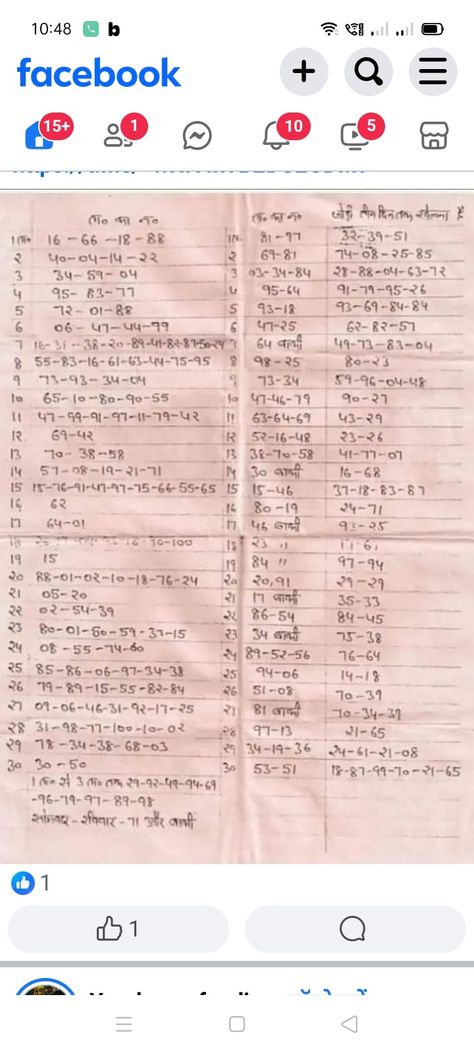 10:48
facebook
15+ 1 10 5
ता० का न०
1 ता० 16-66-18-88
2 40-04-14-22
3 34-59-04
4 95-83-77
5 72-01-88
6 06-47-44-99
7 16-31-38-20-89-41-82-87-50-24
8 55-83-16-61-63-44-75-95
9 73-93-34-04
10 65-10-80-90-55
11 47-99-91-97-11-79-42
12 69-42
13 70-38-58
14 57-08-19-21-71
15 15-76-91-47-97-75-66-55-65
16 62
17 64-01
18
19 15
20 88-01-02-10-18-76-24
21 05-20
22 02-54-39
23 80-01-60-59-37-15
24 08-55-74-60
25 85-86-06-97-34-38
26 79-89-15-55-82-84
27 09-06-46-31-92-17-25
28 31-98-77-100-10-02
29 78-34-38-68-03
30 30-50
1 ता० से 3 ता० तक 29-92-49-94-69
-96-79-97-89-98
सोमवार - रविवार - 71 और वाली
ता० का न० जोड़ी तीन दिन तक खेलना है
1 ता० 81-97 32-39-51
2 69-81 74-08-25-85
3 03-34-84 28-88-04-63-72
4 95-64 91-79-95-26
5 93-18 93-69-84-84
6 47-25 62-82-57
7 64 वाली 49-73-83-04
8 98-25 80-23
9 73-34 59-96-04-48
10 47-46-79 90-27
11 63-64-69 43-29
12 52-16-48 23-26
13 38-70-58 41-77-07
14 30 वाली 16-68
15 15-46 37-18-83-87
16 80-19 24-71
17 46 वाली 93-25
18 23 "
19 84 " 97-94
20 20,91 29-29
21 17 वाली 35-33
22 86-54 84-45
23 34 वाली 75-38
24 89-52-56 76-64
25 94-06 14-18
26 51-08 70-39
27 81 वाली 70-34-39
28 97-13 21-65
29 34-19-36 24-61-21-08
30 53-51 18-87-99-70-21-65
1
1